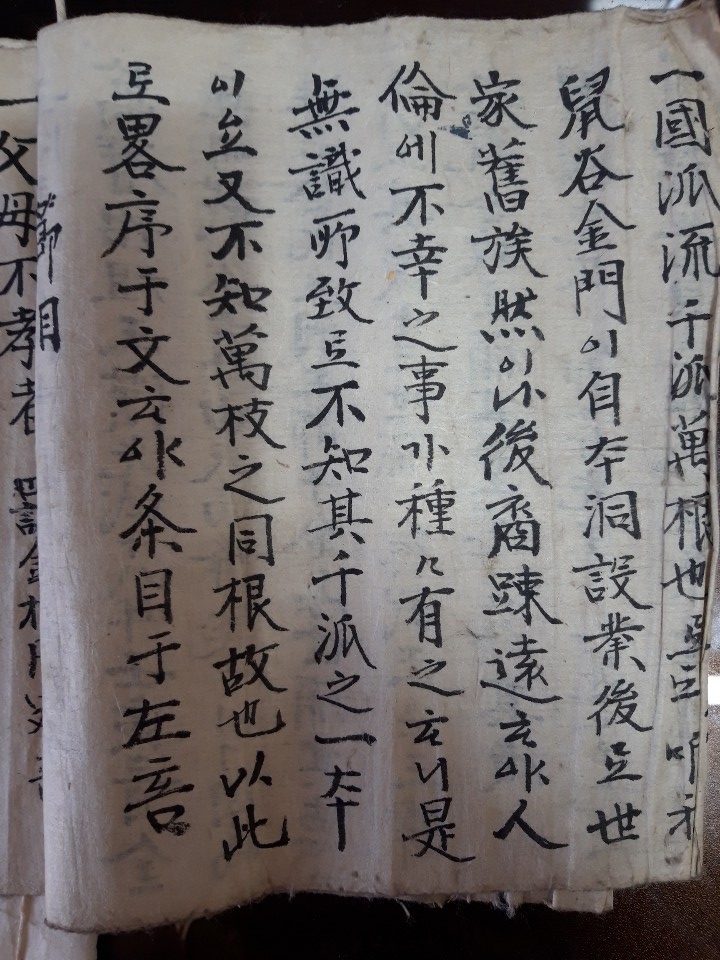 一國派流千派萬根也
鼠谷金門이自夲洞設業後로世
家舊族然이나後裔踈遠ᄒᆞ야人
倫에不幸之事가種〻有之ᄒᆞ니是
無識所致로不知其千派之一夲
이요又不知萬枝之同根故也以此
로畧序于文ᄒᆞ야条目于左
節目
一父母不孝者